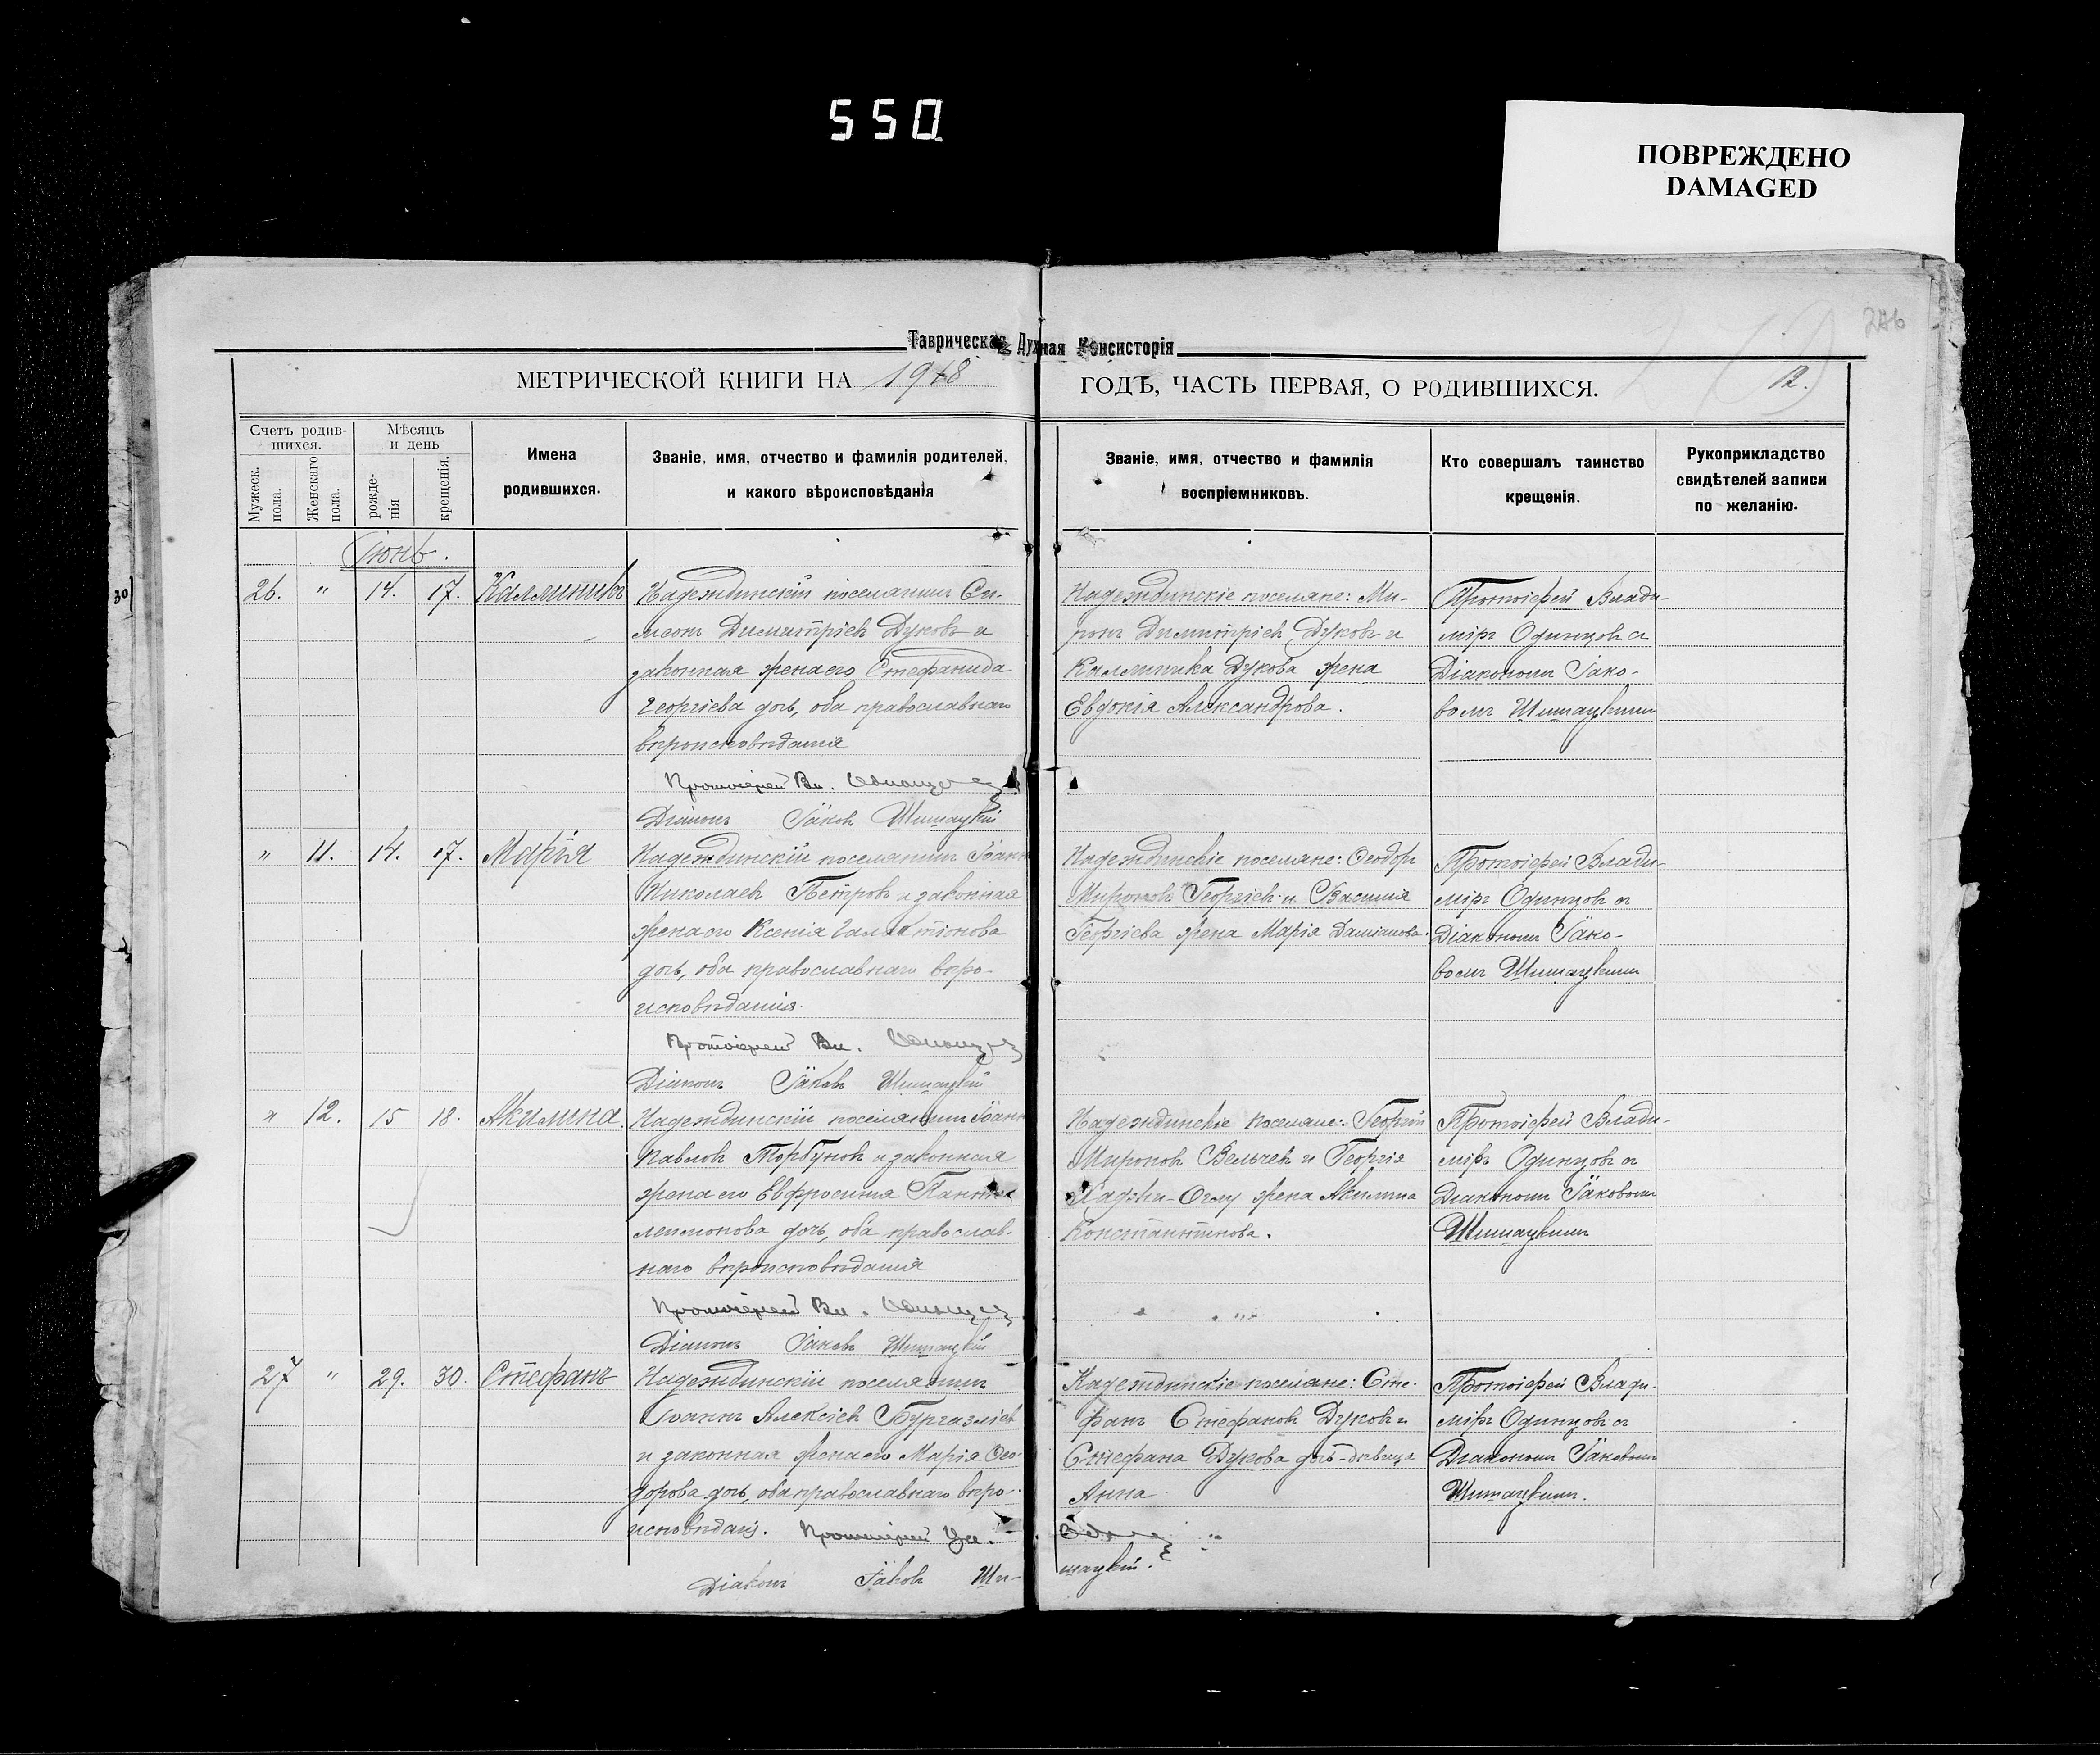 550
ПОВРЕЖДЕНО
DAMAGED
Таврическая Духная Консисторія
МЕТРИЧЕСКОЙ КНИГИ НА 1918
ГОДѢ, ЧАСТЬ ПЕРВАЯ, О РОДИВШИХСЯ.
12.
Счетъ родив-
шихся.
Мужеск.
пола.
Женскаго
пола.
Мѣсяцъ
и день
рожде-
нія
крещенія.
Имена
родившихся.
Званіе, имя, отчество и фамилія родителей,
и какого вѣроисповѣданія
Званіе, имя, отчество и фамилія
воспріемниковъ.
Кто совершалъ таинство
крещенія.
Рукоприкладство
свидѣтелей записи
по желанію.
30
Іюнь.
26. " 14. 17. Каллиникъ
Надеждинскій поселянинъ Си-
меонъ Димитріевъ Дуковъ и
законная жена его Стефанида
Георгіева дочь, оба православнаго
вѣроисповѣданія
Протоіерей Вл. Одинцовъ
Діаконъ Іаковъ Шишацкій
Надеждинскіе поселяне: Ми-
ронъ Димитріевъ Дуковъ и
Каллиника Дукова жена
Евдокія Александрова.
Протоіерей Влади-
міръ Одинцовъ съ
Діакономъ Іако-
вомъ Шишацкимъ
" 11. 14. 17. Марія
Надеждинскій поселянинъ Іоаннъ
Николаевъ Петровъ и законная
жена его Ксенія Галактіонова
дочь, оба православнаго вѣро-
исповѣданія.
Протоіерей Вл. Одинцовъ
Діаконъ Іаковъ Шишацкій
Надеждинскіе поселяне: Ѳеодоръ
Мироновъ Георгіевъ и Василія
Георгіева жена Марія Даміанова.
Протоіерей Влади-
міръ Одинцовъ съ
Діакономъ Іако-
вомъ Шишацкимъ
" 12. 15 18. Акилина.
Надеждинскій поселянинъ Іоаннъ
Павловъ Торбуновъ и законная
жена его Евфросинія Панте
леимонова дочь, оба православ-
наго вѣроисповѣданія
Протоіерей Вл. Одинцовъ
Діаконъ Іаковъ Шишацкій
Надеждинскіе поселяне: Георгій
Мироновъ Вельчевъ и Георгія
Хаджи-Оглу жена Акилина
Константинова.
Протоіерей Влади-
міръ Одинцовъ съ
Діакономъ Іаковомъ
Шишацкимъ
27 " 29. 30. Стефанъ
Надеждинскій поселянинъ
Іоаннъ Алексіевъ Бургазліевъ
и законная жена его Марія Ѳео-
дорова дочь, оба православнаго вѣро-
исповѣданія. Протоіерей Вл.
Діаконъ Іаковъ Ши-
Надеждинскіе поселяне: Сте-
фанъ Стефановъ Дуковъ и
Стефана Дукова дочь-дѣвица
Анна
Одинцовъ
шацкій.
Протоіерей Влади-
міръ Одинцовъ съ
Діакономъ Іаковомъ
Шишацкимъ.